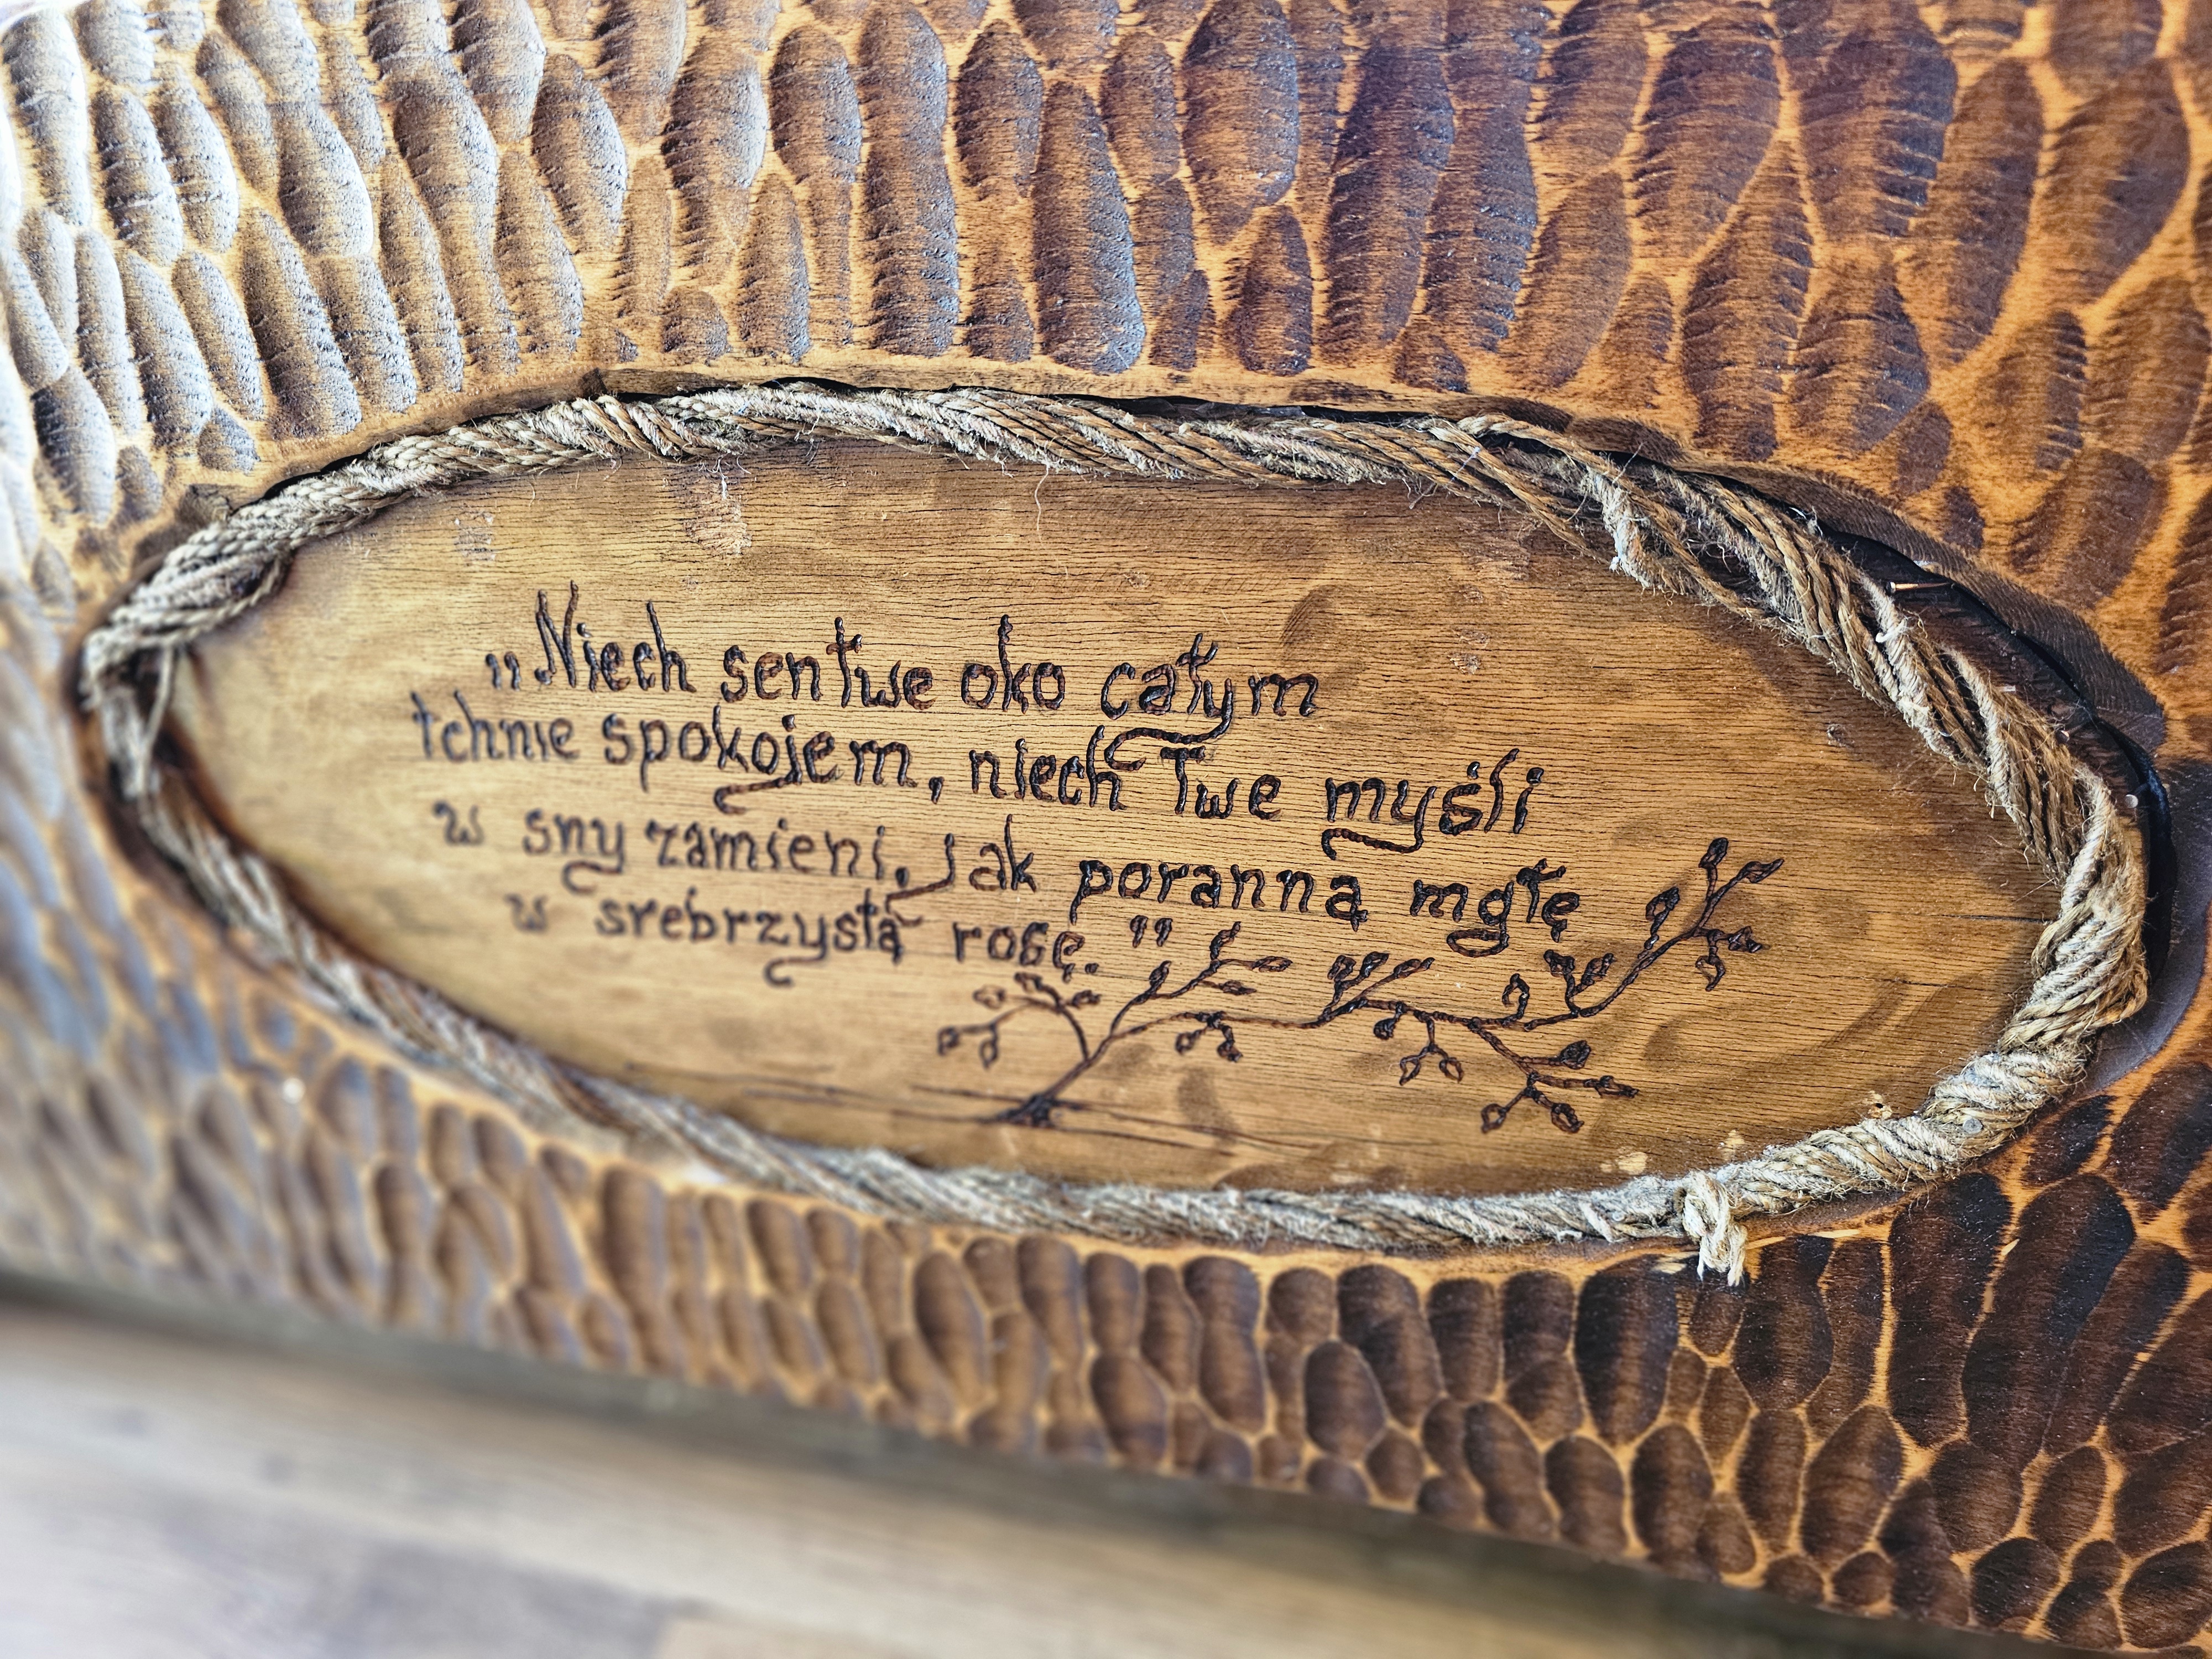 „Niech sen twe oko całym
tchnie spokojem, niech Twe myśli
w sny zamieni, jak poranną mgłę
w srebrzystą rosę.”